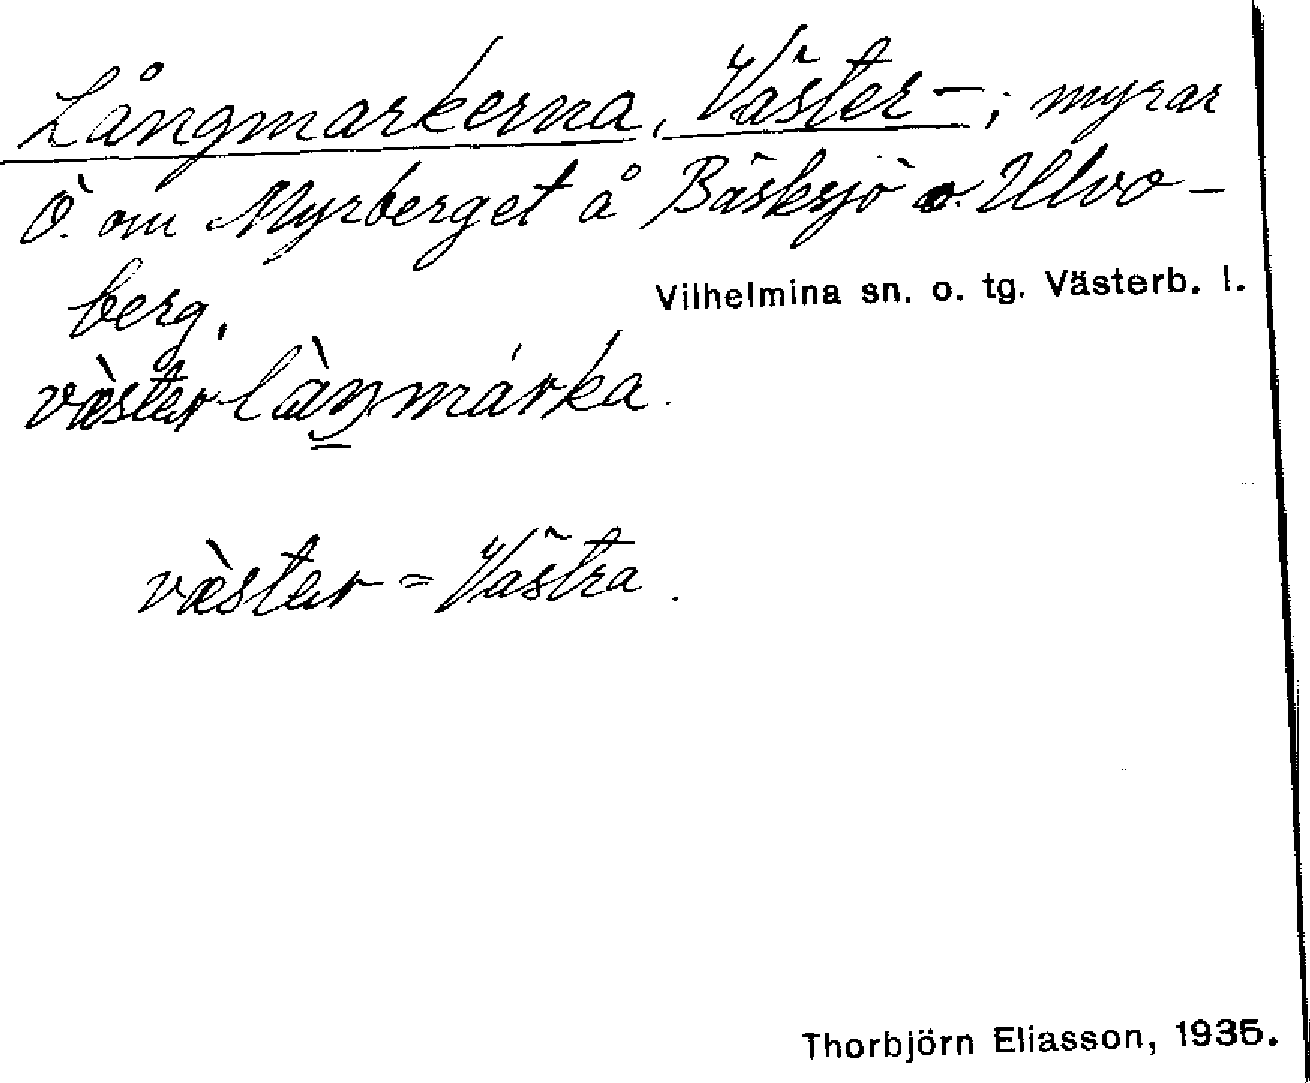 Långmarkerna, Väster-; myrar
Ö. om Myrberget å Bäsksjö o. Ulvo-
berg.
Vilhelmina sn. o. tg. Västerb. l.
væ̀star làŋmárka.
væ̀star = Västra.
Thorbjörn Eliasson, 1935.